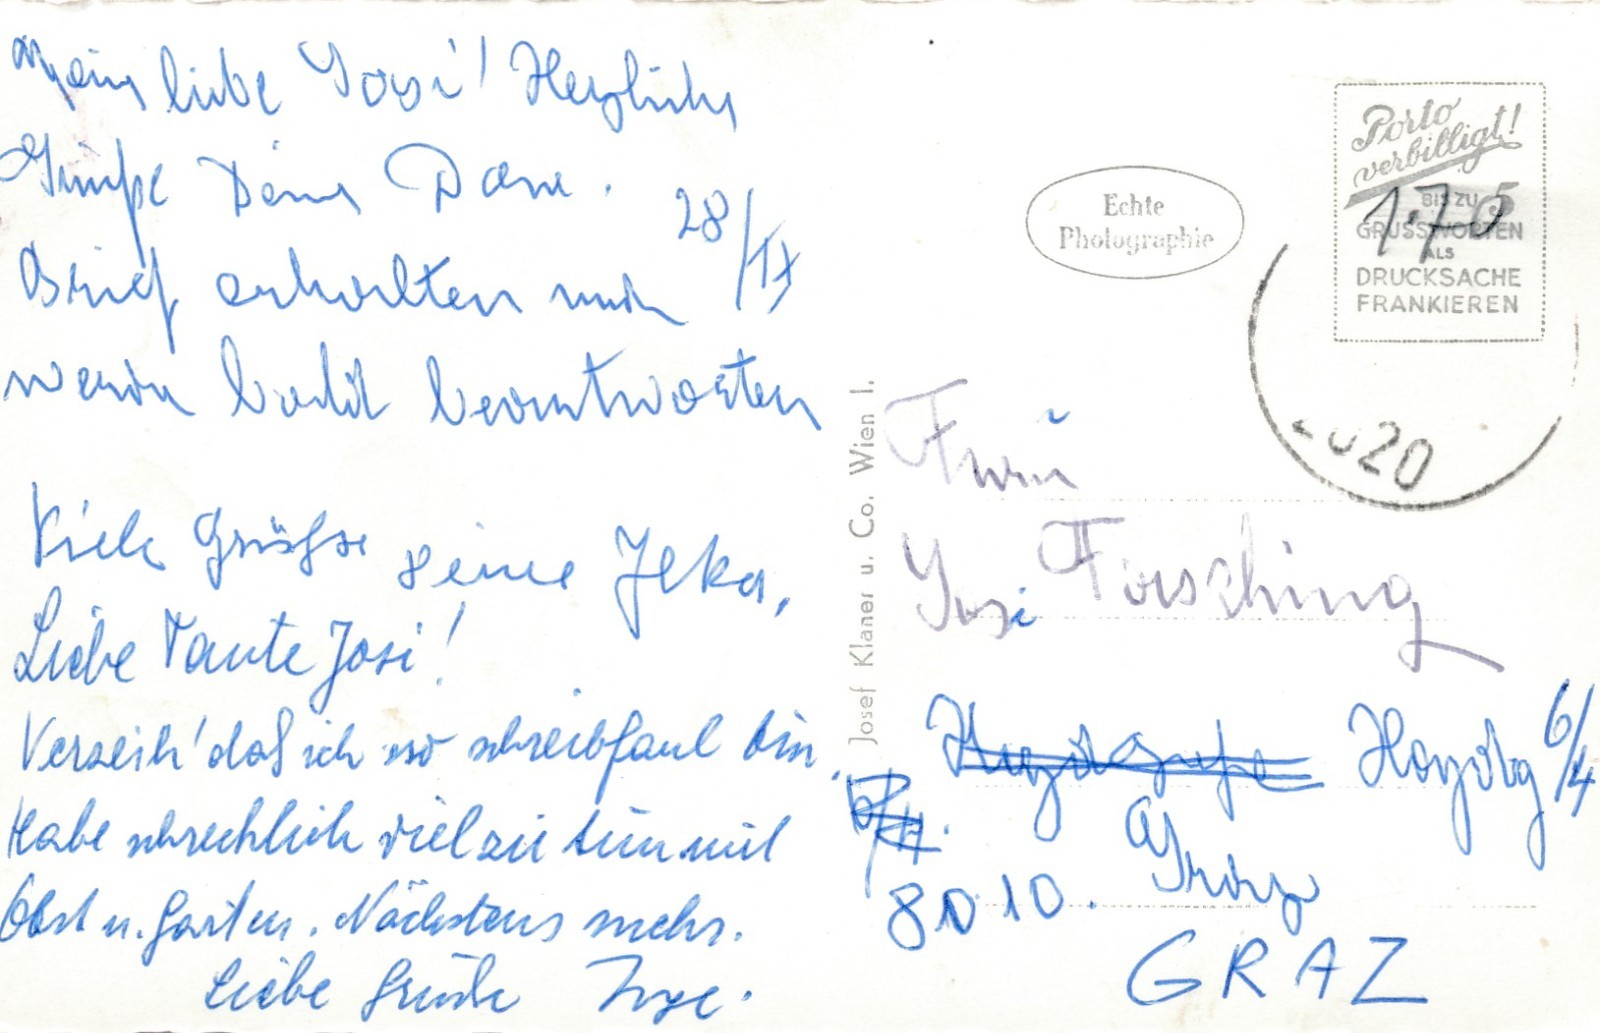 Meine liebe Josi! Herzliche
Grüße Deine
28/
Brief erhalten und
werde beantworten
Viele Grüsse seine Jlka,
Liebe Tante Josi!
Verzeih' daß ich so schreibfaul bin.
Habe schrecklich viel zu tun mit
Obst u. Garten. Nächstens mehr.
Liebe Grüße Inge.
Josef Klaner u. Co. Wien I.
Echte
Photographie
Porto
verbilligt!
BIS ZU
GRUSSWORTEN
ALS
DRUCKSACHE
FRANKIEREN
20
Frau
Josi Forsching
6/4
8010. Graz
GRAZ